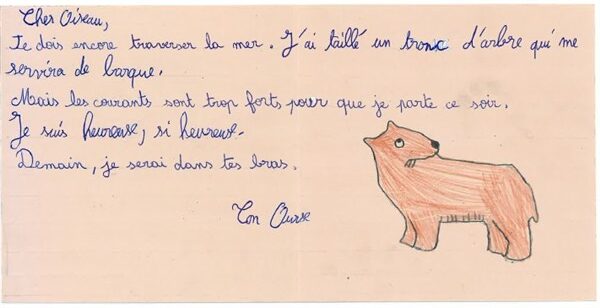 Cher Oiseau,
Je dois encore traverser la mer. J'ai taillé un tronc d'arbre qui me
servira de barque.
Mais les courants sont trop forts pour que je parte ce soir.
Je suis heureuse, si heureuse.
Demain, je serai dans tes bras.
Ton Ourse